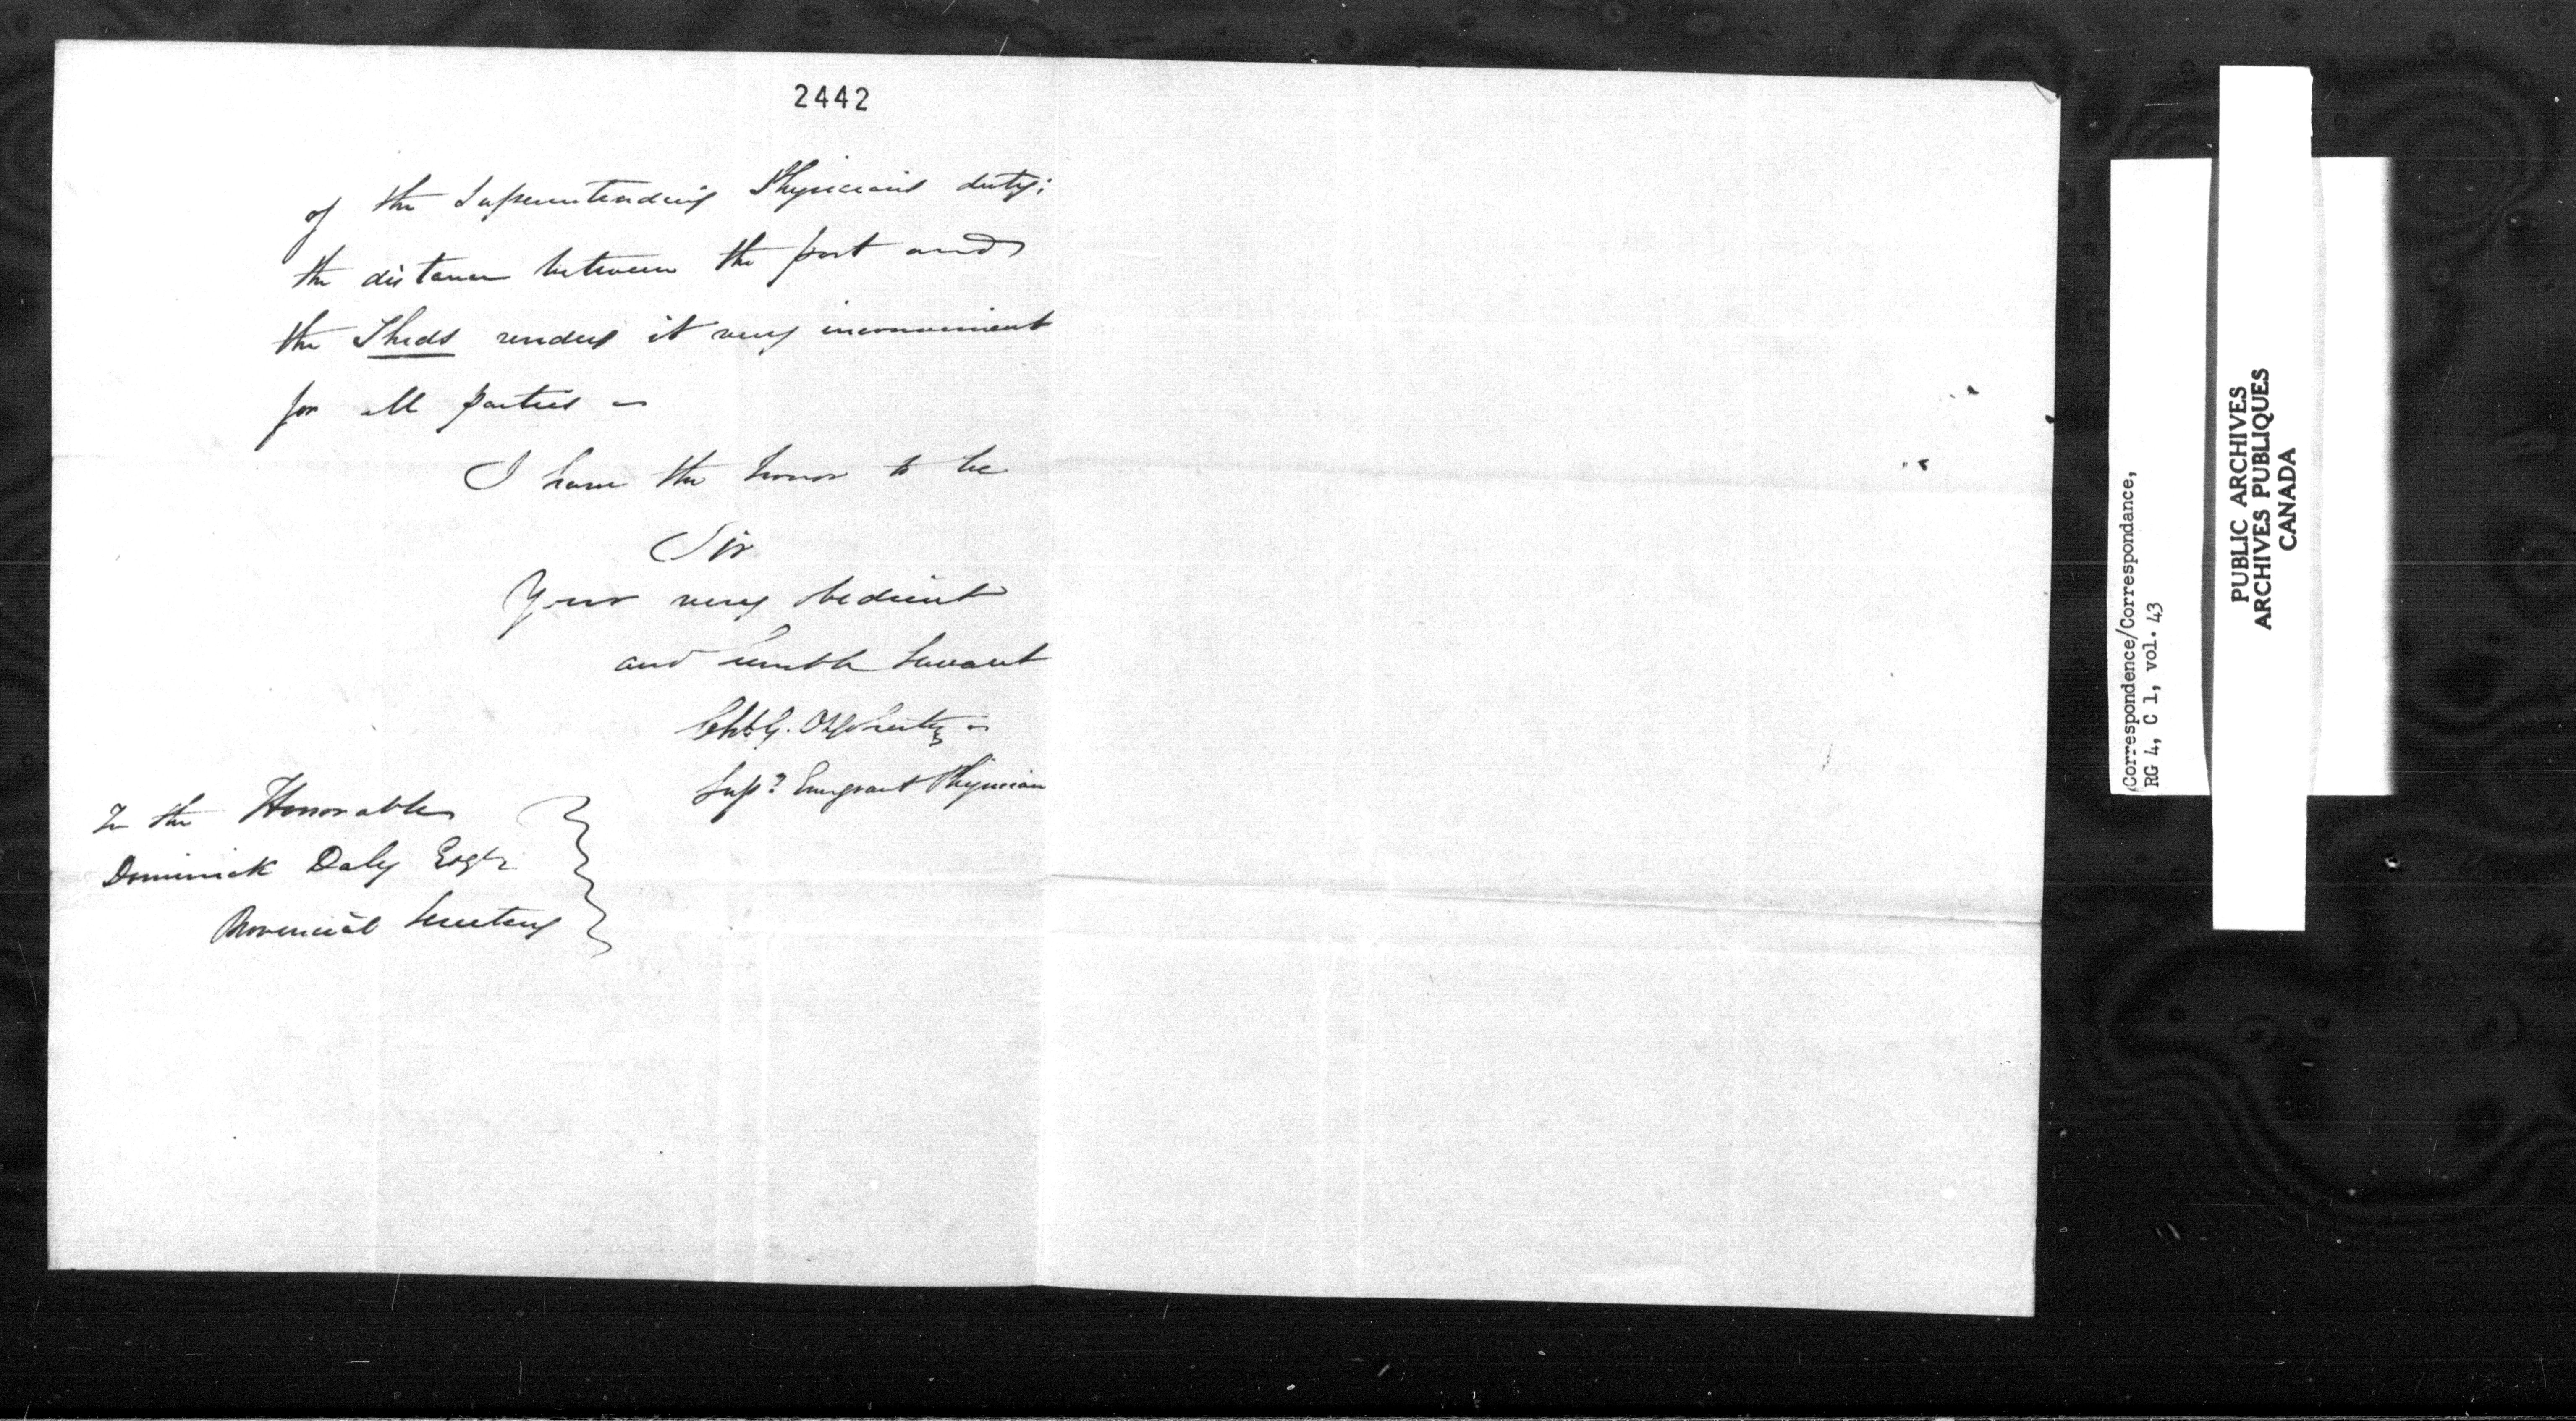 2442
of the Superintending Physicians duty;
the distance between the port and
the Sheds renders it very inconvenient
for all parties —
I have the honor to be
Sir
Your very obedient
and humble Servant
G.
Supt Emigrant Physician
To the Honorable
Dominick Daly Esqr
Provincial Secretary
Correspondence/Correspondance,
RG 4, C 1, vol. 43
PUBLIC ARCHIVES
ARCHIVES PUBLIQUES
CANADA